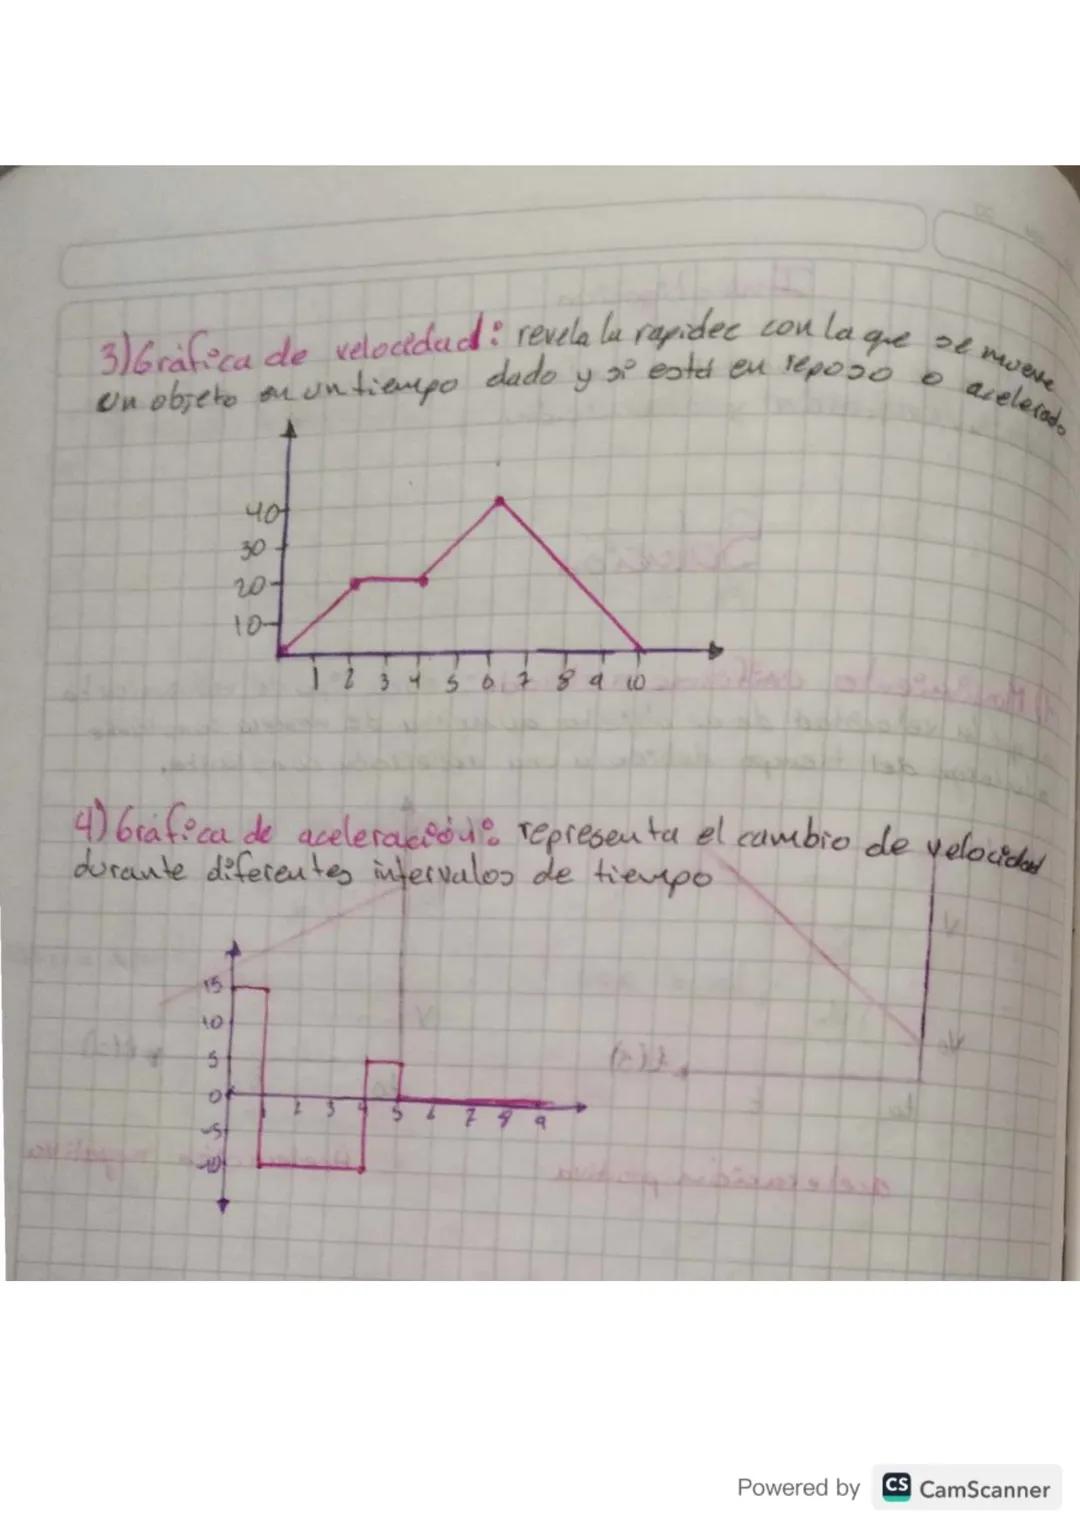 3) Gráfica de velocidad: revela la rapidec con la que se mueve
un objeto en un tiempo dado y si está en reposo o acelerado
40
30
20
10
1 2 3 4 5 6 7 8 9 10
4) Gráfica de aceleración: representa el cambio de velocidad
durante diferentes intervalos de tiempo
15
10
5
0
1 2 3 4 5 6 7 8 9
-5
-10
Powered by CS CamScanner